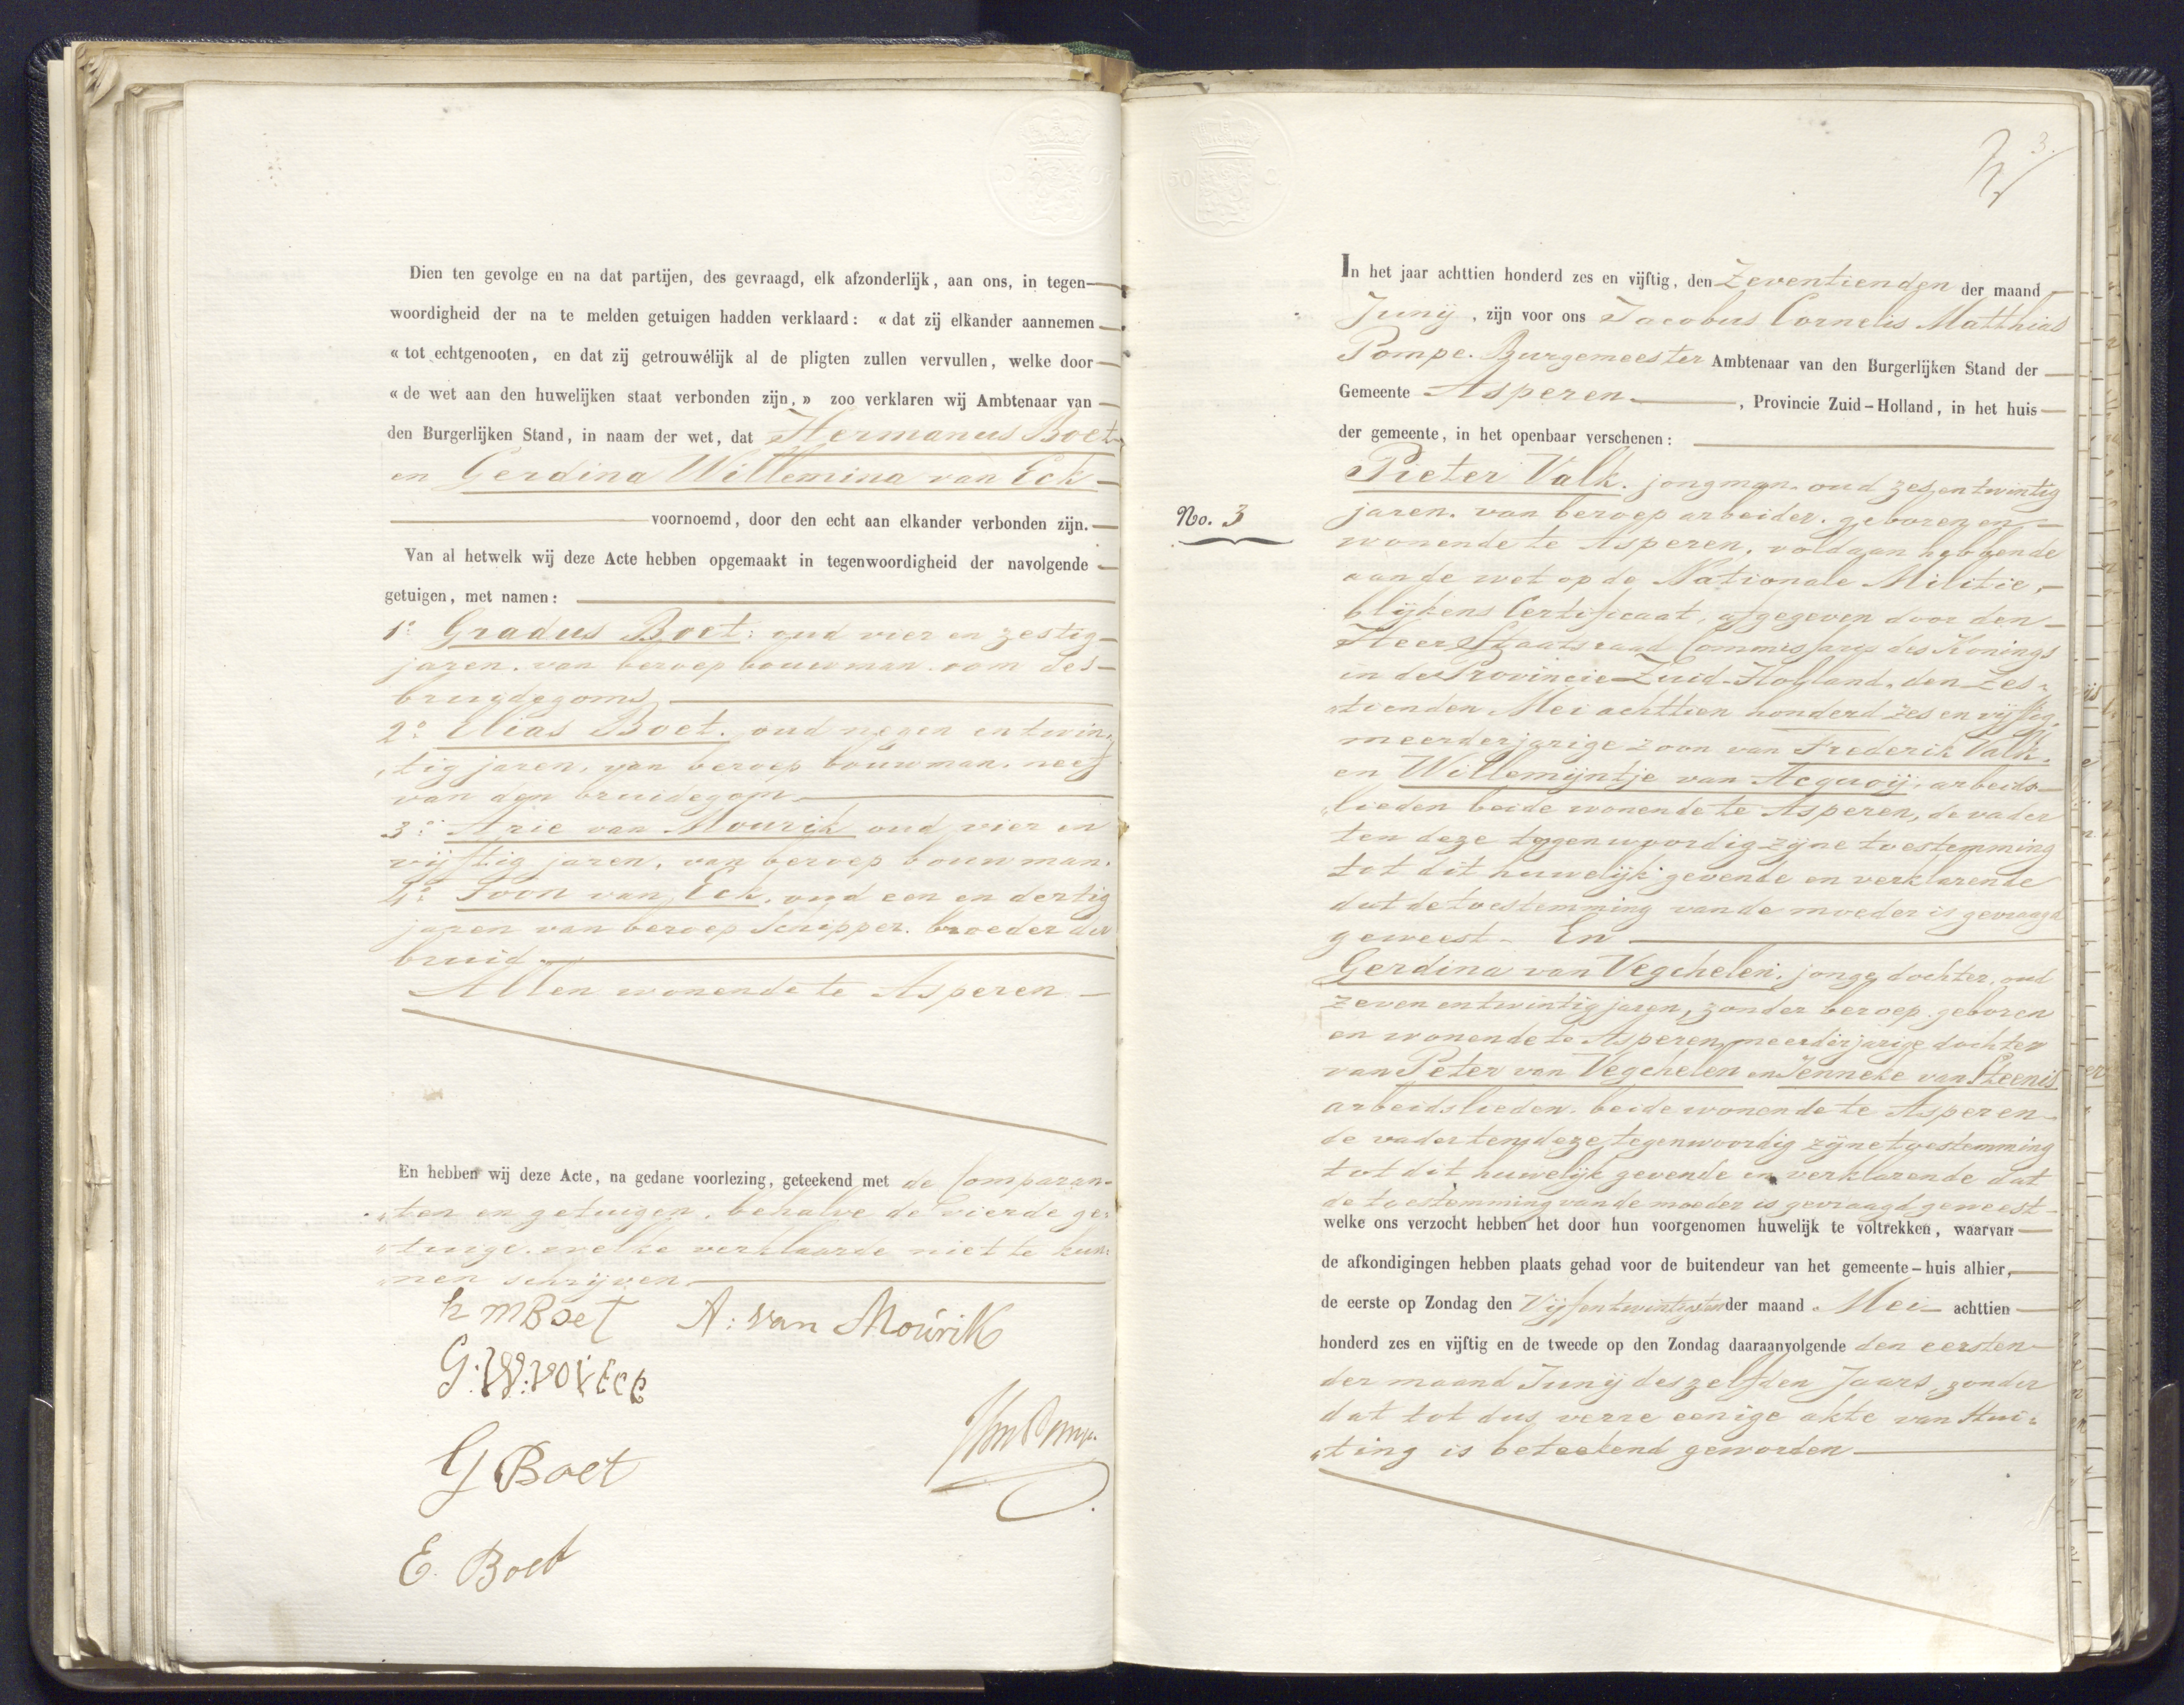 Dien ten gevolge en na dat partijen, des gevraagd, elk afzonderlijk, aan ons, in tegen-
woordigheid der na te melden getuigen hadden verklaard: « dat zij elkander aannemen
« tot echtgenooten, en dat zij getrouwélijk al de pligten zullen vervullen, welke door
« de wet aan den huwelijken staat verbonden zijn, » zoo verklaren wij Ambtenaar van
den Burgerlijken Stand, in naam der wet, dat Hermanus Boet
en Gerdina Willemina van Eck
voornoemd, door den echt aan elkander verbonden zijn.
Van al hetwelk wij deze Acte hebben opgemaakt in tegenwoordigheid der navolgende
getuigen, met namen:
1o. Gradus Boet. oud vier en zestig
jaren. van beroep bouwman. oom des
bruidegoms
2o. Elias Boet. oud negen en twin„
„tig jaren, van beroep bouwman. neef
van den bruidegom
3o. Arie van Mourik oud vier en
vijftig jaren, van beroep bouwman.
4o. Toon van Eck. oud een en dertig
jaren van beroep Schipper. broeder der
bruid.
Allen wonende te Asperen
En hebben wij deze Acte, na gedane voorlezing, geteekend met de Comparan„
„ten en getuigen, behalve de vierde ge„
„tuige. welke verklaarde niet te kun„
„nen schrijven
h m Boet A: van Mourik
G:W:
G Boet
E. Boet
3.
In het jaar achttien honderd zes en vijftig, den Zeventienden der maand
Junij, zijn voor ons Jacobus Cornelis Matthias
Pompe. Burgemeester Ambtenaar van den Burgerlijken Stand der
Gemeente Asperen, Provincie Zuid-Holland, in het huis
der gemeente, in het openbaar verschenen:
No. 3
Pieter Valk. jongman. oud zes en twintig
jaren. van beroep arbeider. geboren en
wonende te Asperen, voldaan hebbende
aan de wet op de Nationale Militie,
blijkens Certificaat, afgegeven door den
Heer Staatsraad Commissaris des Konings
in de Provincie Zuid-Holland, den Zes„
„tienden Mei achttien honderd zes en vijftig,
meerderjarige zoon van Frederik Valk.
en Willemijntje van Acquoij. arbeids„
„lieden beide wonende te Asperen, de vader
ten deze tegenwoordig zijne toestemming
tot dit huwelijk gevende en verklarende
dat de toestemming van de moeder is gevraagd
geweest. En
Gerdina van Vegchelen. jonge dochter, oud
zeven en twintig jaren, zonder beroep. geboren
en wonende te Asperen, meerderjarige dochter
van Peter van Vegchelen en Jenneke van Steenis
arbeidslieden. beide wonende te Asperen
de vader ten deze tegenwoordig zijne toestemming
tot dit huwelijk gevende en verklarende dat
de toestemming van de moeder is gevraagd geweest
welke ons verzocht hebben het door hun voorgenomen huwelijk te voltrekken, waarvan
de afkondigingen hebben plaats gehad voor de buitendeur van het gemeente-huis alhier,
de eerste op Zondag den Vijfentwintigsten der maand Mei achttien
honderd zes en vijftig en de tweede op den Zondag daaraanvolgende den eersten
der maand Junij deszelfden Jaars, zonder
dat tot dus verre eenige akte van stui„
„ting is beteekend geworden